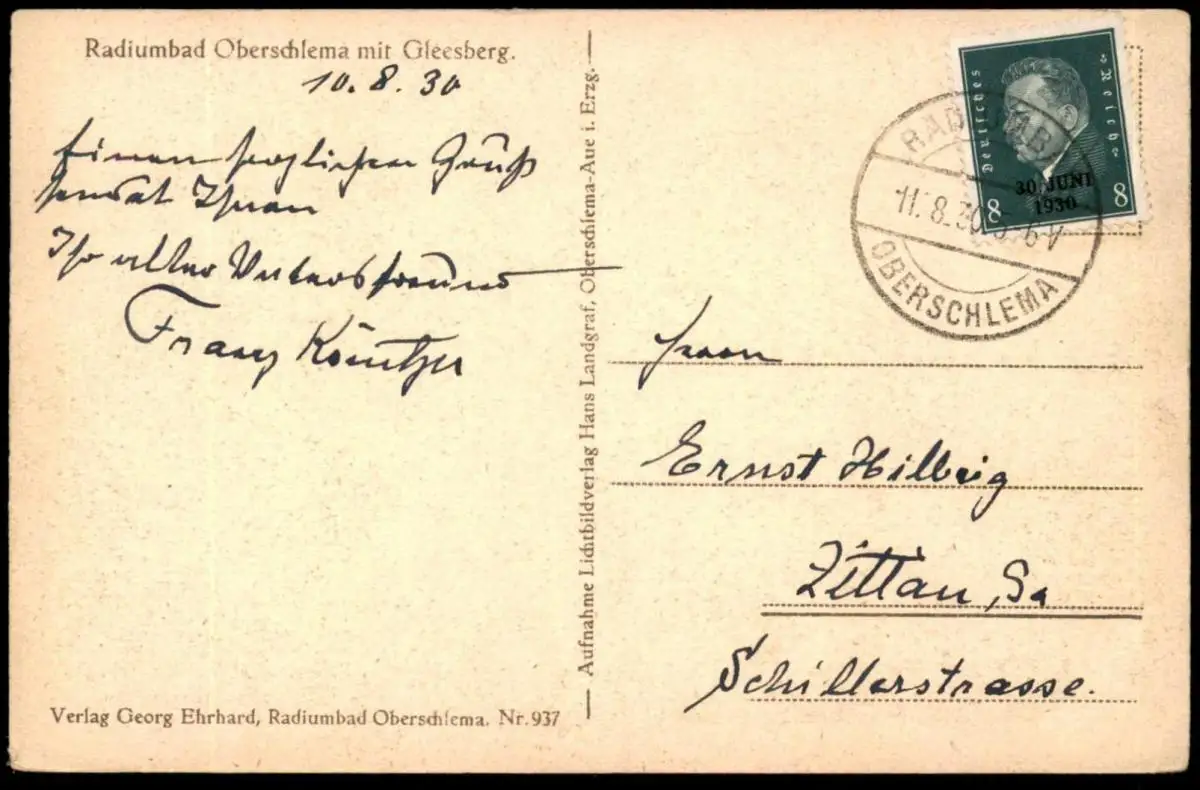 Radiumbad Oberschlema mit Gleesberg.
10.8.30
Einen herzlichen Gruß
sendet Ihnen
Ihr alter Vatersfreund
Franz
Aufnahme Lichtbildverlag Hans Landgraf, Oberschlema-Aue i. Erzg.
Verlag Georg Ehrhard, Radiumbad Oberschlema. Nr. 937
Deutsches Reich
30. JUNI
1930
8 8
RADIUMBAD
11.8.30. 5-6V
OBERSCHLEMA
Herrn
Ernst Hilbrig
Zittau, Sa
Schillerstrasse.